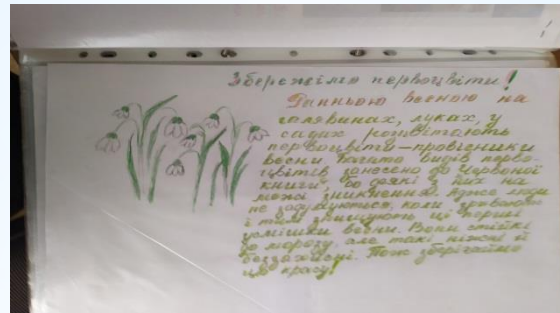 Збережімо первоцвіти!
Ранньою весною на
галявинах, луках, у
садах розцвітають
первоцвіти – провісники
весни. Багато видів перво-
цвітів занесено до Червоної
книги, бо деякі з них на
межі зникнення. Адже люди
не задумуються, коли зривають
і тим знищують ці перші
усмішки весни. Вони стійкі
до морозу, але такі ніжні й
беззахисні. Тож зберігаймо
цю красу!